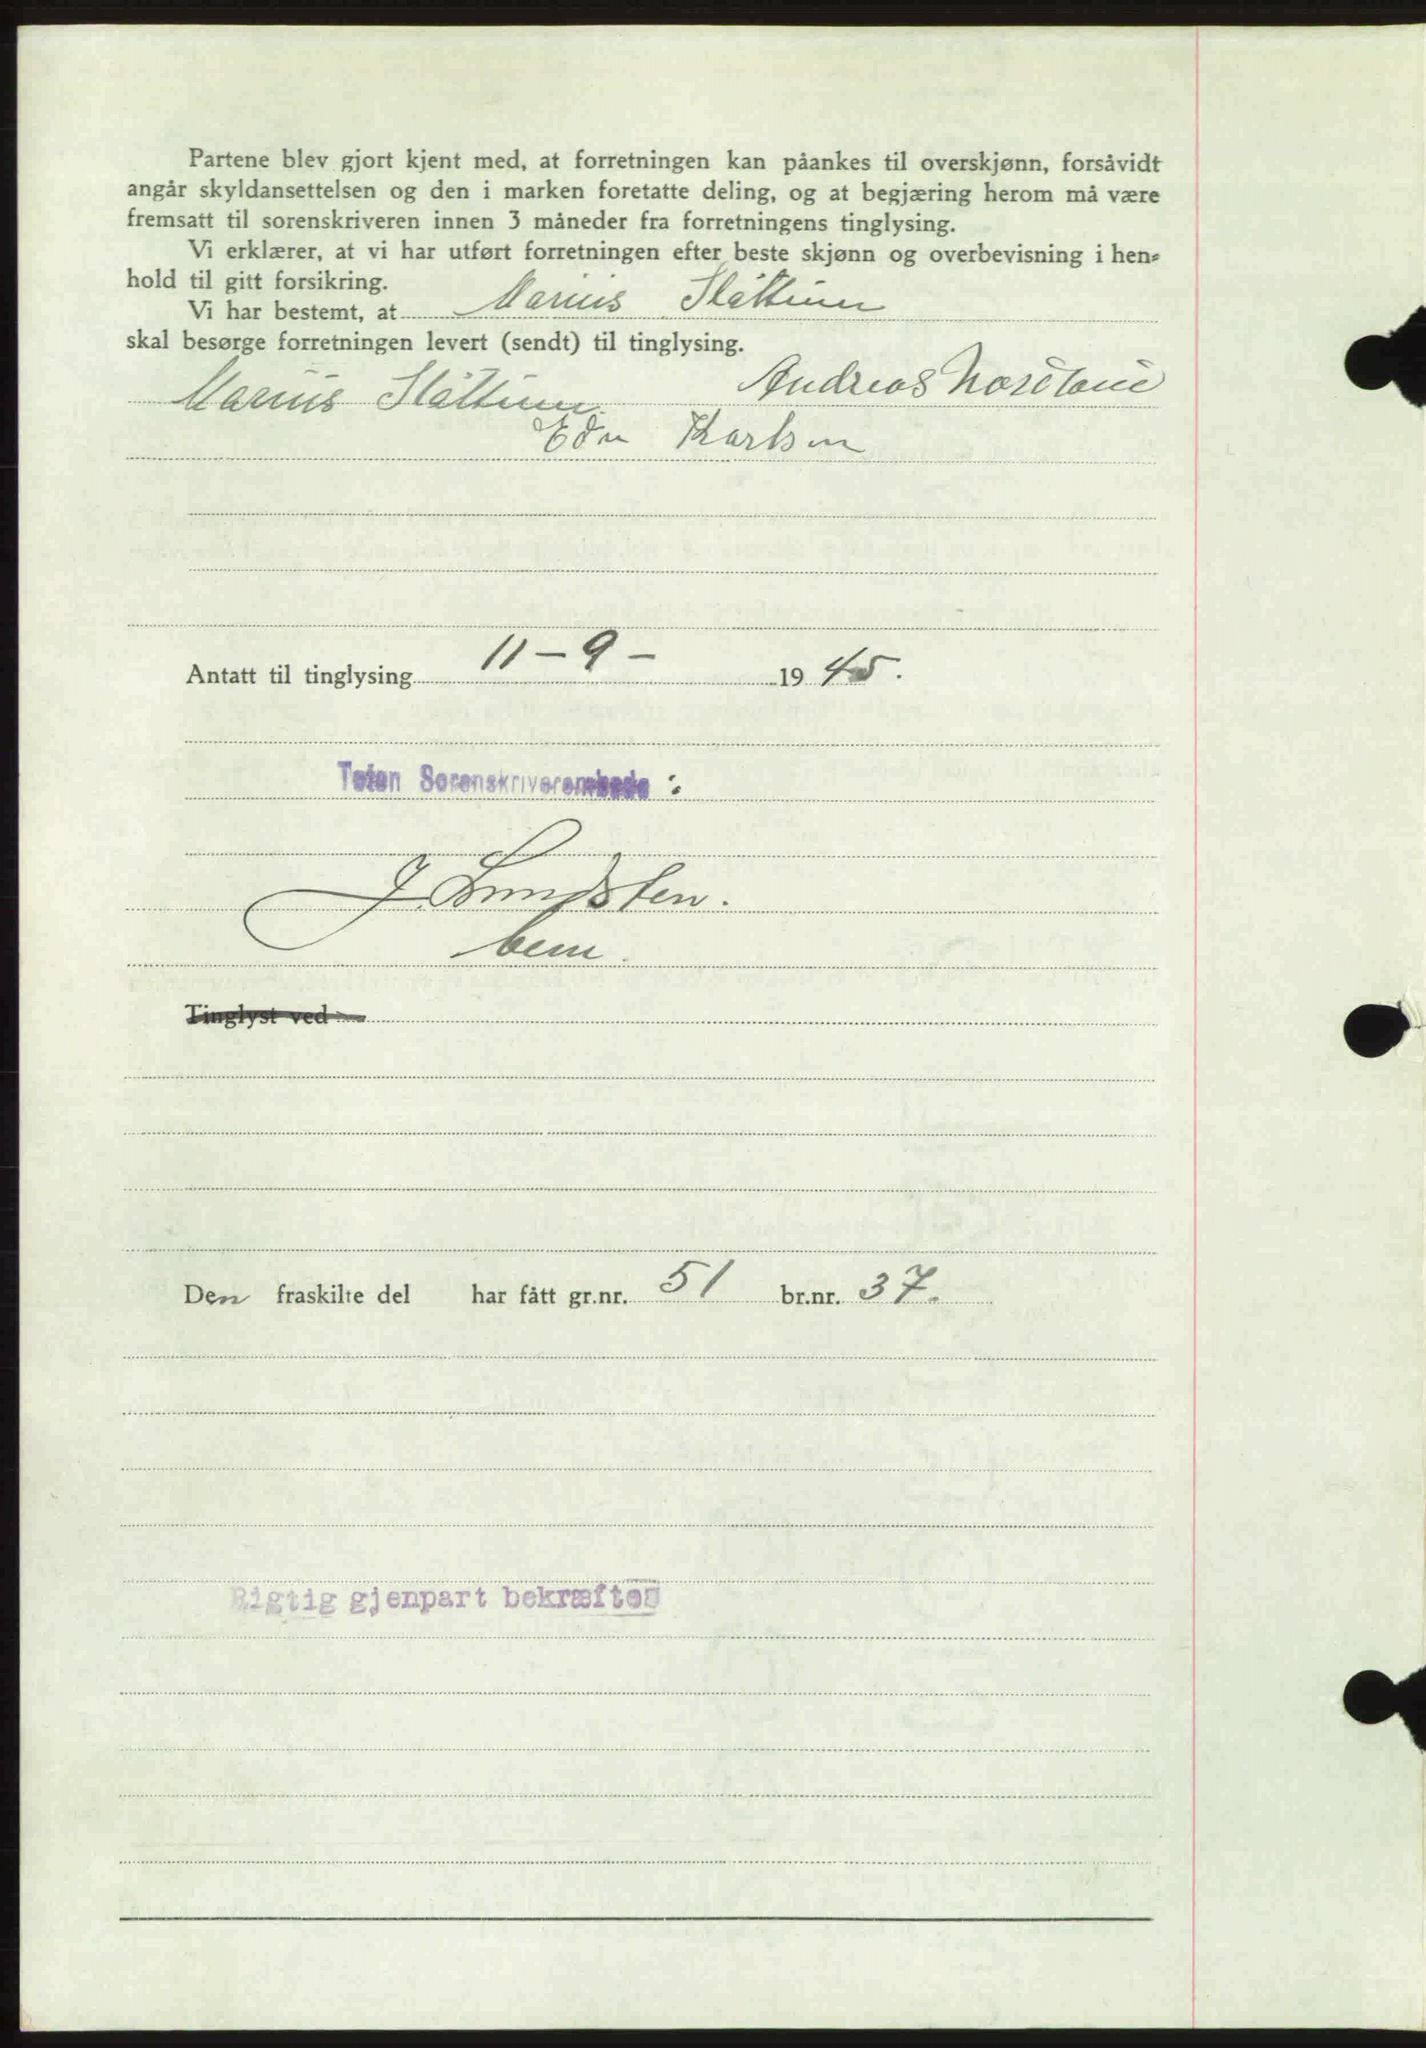 Partene blev gjort kjent med, at forretningen kan påankes til overskjønn, forsåvidt
angår skyldansettelsen og den i marken foretatte deling, og at begjæring herom må være
fremsatt til sorenskriveren innen 3 måneder fra forretningens tinglysing.
Vi erklærer, at vi har utført forretningen efter beste skjønn og overbevisning i hen-
hold til gitt forsikring.
Vi har bestemt, at Marius Slåttum
skal besørge forretningen levert (sendt) til tinglysing.
Marius Slåttum Andreas
Karlsen
Antatt til tinglysing 11-9- 1945.
Toten Sorenskriverembede:
J. Lundsten.
bem.
Tinglyst ved
Den fraskilte del har fått gr.nr. 51 br.nr. 37.
Rigtig gjenpart bekræftes